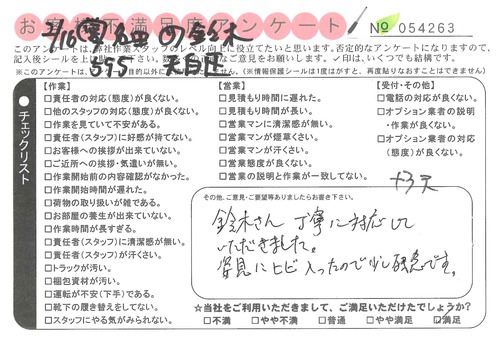 お客様不満足度アンケート
№ 054263
このアンケートは、弊社作業スタッフのレベル向上に役立てたいと思います。否定的なアンケートになりますので、
記入後シールを上
ご意見をお願い致します。✓印は、いくつでも結構です。
※このアンケートは、
目的以外に
(※情報保護シールは1度はがすと、再度貼りなおすことはできません)
チェックリスト
【作業】
□責任者の対応(態度)が良くない。
□他のスタッフの対応(態度)が良くない。
□作業を見ていて不安がある。
□責任者(スタッフ)に好感が持てない。
□お客様への挨拶が出来ていない。
□ご近所への挨拶・気遣いが無い。
□作業開始前の内容確認がなかった。
□作業開始時間が遅れた。
□荷物の取り扱いが雑である。
□お部屋の養生が出来ていない。
□作業時間が長すぎる。
□責任者(スタッフ)に清潔感が無い。
□責任者(スタッフ)が汗くさい。
□トラックが汚い。
□梱包資材が汚い。
□運転が不安(下手)である。
□靴下の履き替えをしてない。
□スタッフにやる気がみられない。
【営業】
□見積もり時間に遅れた。
□見積もり時間が長い。
□営業マンに清潔感が無い。
□営業マンが煙草くさい。
□営業マンが汗くさい。
□営業態度が良くない。
□営業の説明と作業が一致してない。
【受付・その他】
□電話の対応が良くない。
□オプション業者の説明
・作業が良くない。
□オプション業者の対応
(態度)が良くない。
その他、ご意見・ご要望等ありましたらお書き下さい。
鈴木さん 丁寧に対応して
いただきました。
姿見にヒビ入ったので少し残念です。
☆当社をご利用いただきまして、ご満足いただけたでしょうか?
□不満 □やや不満 □普通 □やや満足 ☑満足